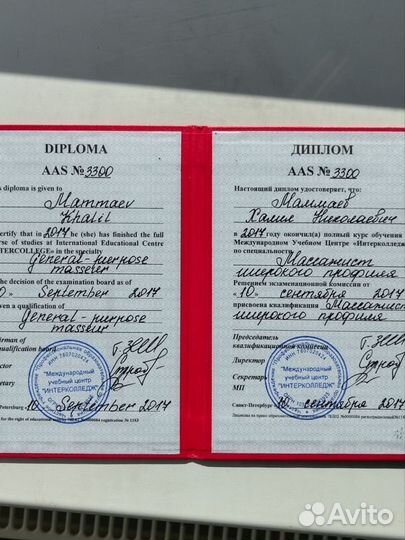 DIPLOMA
AAS № 3300
is diploma is given to
Mammaev
Khalil
ertify that in 2017 he (she) has finished the full
rse of studies at International Educational Centre
NTERCOLLEGE» in the specialty
General-purpose
masseur
the decision of the examination board as of
September 2017
ven a qualification of
General-purpose
masseur
irman of
qualification board
ctor
retary
"Международный
учебный центр
"ИНТЕРКОЛЛЕДЖ"
Petersburg 10 September 2017
ДИПЛОМ
AAS № 3300
Настоящий диплом удостоверяет, что:
Маммаев
Халил Николаевич
в 2017 году окончил(а) полный курс обучения
Международном Учебном Центре «Интерколледж
по специальности
Массажист
широкого профиля
Решением экзаменационной комиссии от
« 10 » сентября 2017
присвоена квалификация Массажист
широкого профиля
Председатель
квалификационной комиссии
Директор
Секретарь
МП
"Международный
учебный центр
"ИНТЕРКОЛЛЕДЖ"
Санкт-Петербург 10 сентября 2017
Avito